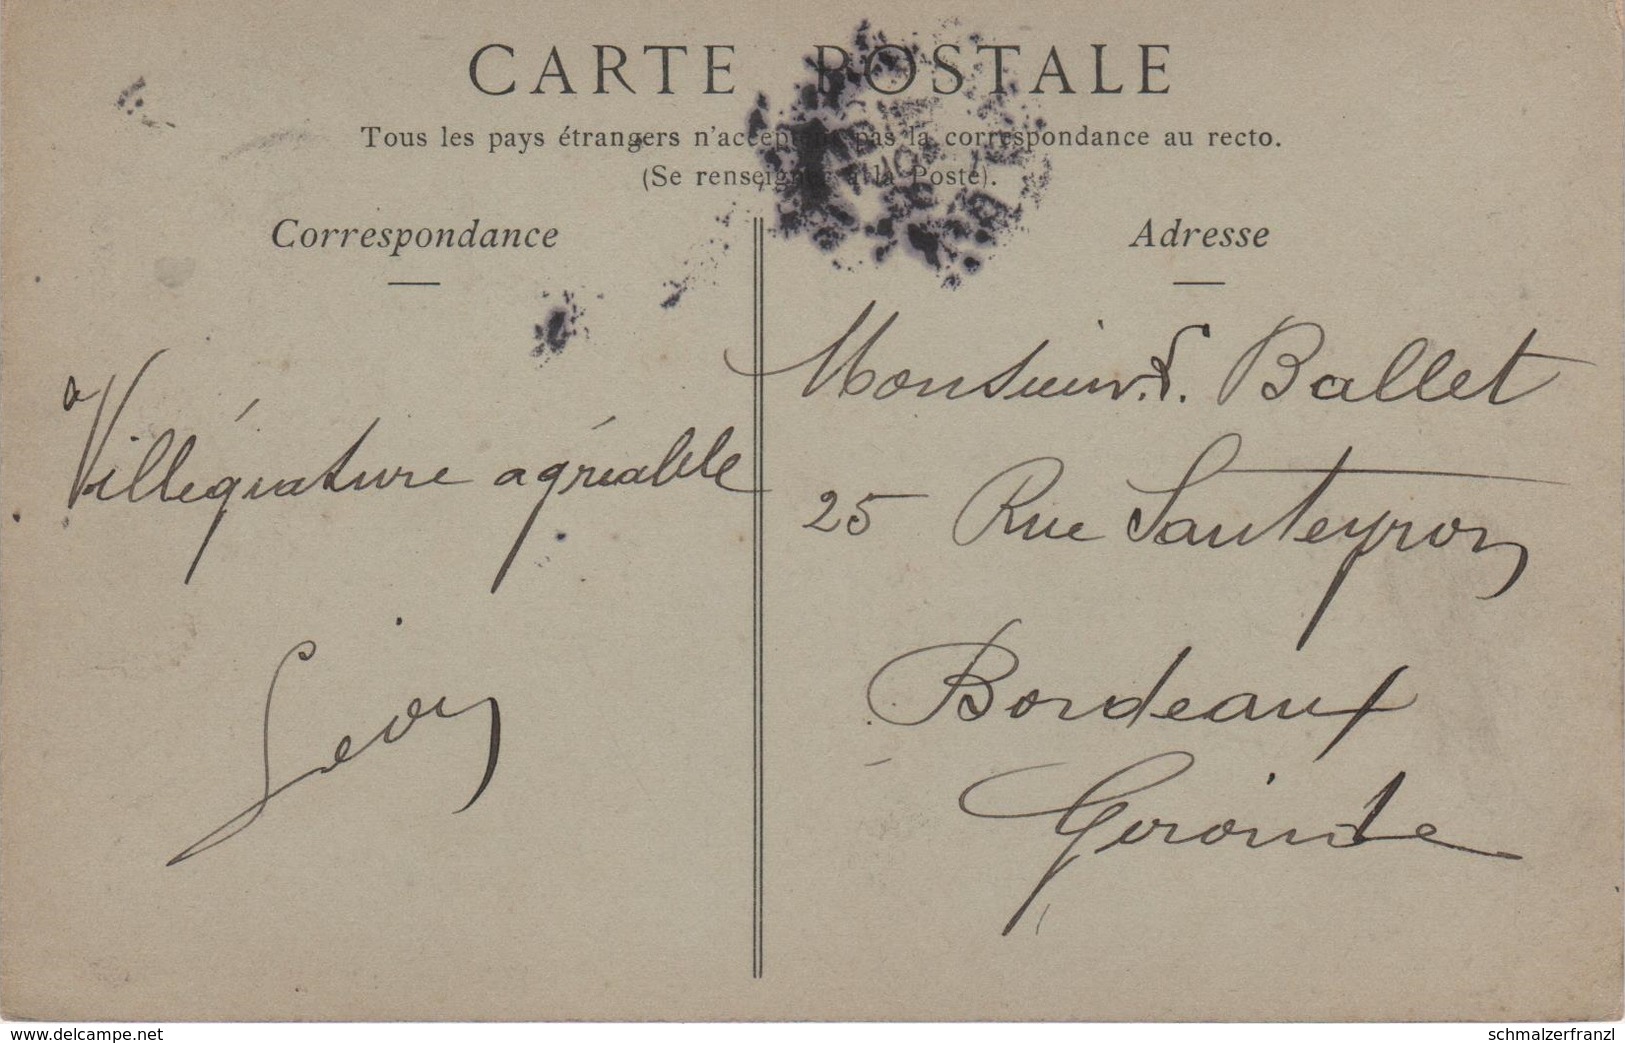 CARTE POSTALE
Tous les pays étrangers n'acceptent pas la correspondance au recto.
(Se renseigner à la Poste).
Correspondance
Adresse
Villégiature agréable
Léon
Monsieur Ballet
25 Rue Sauteyron
Bordeaux
Gironde
www.delcampe.net
schmalzerfranzl